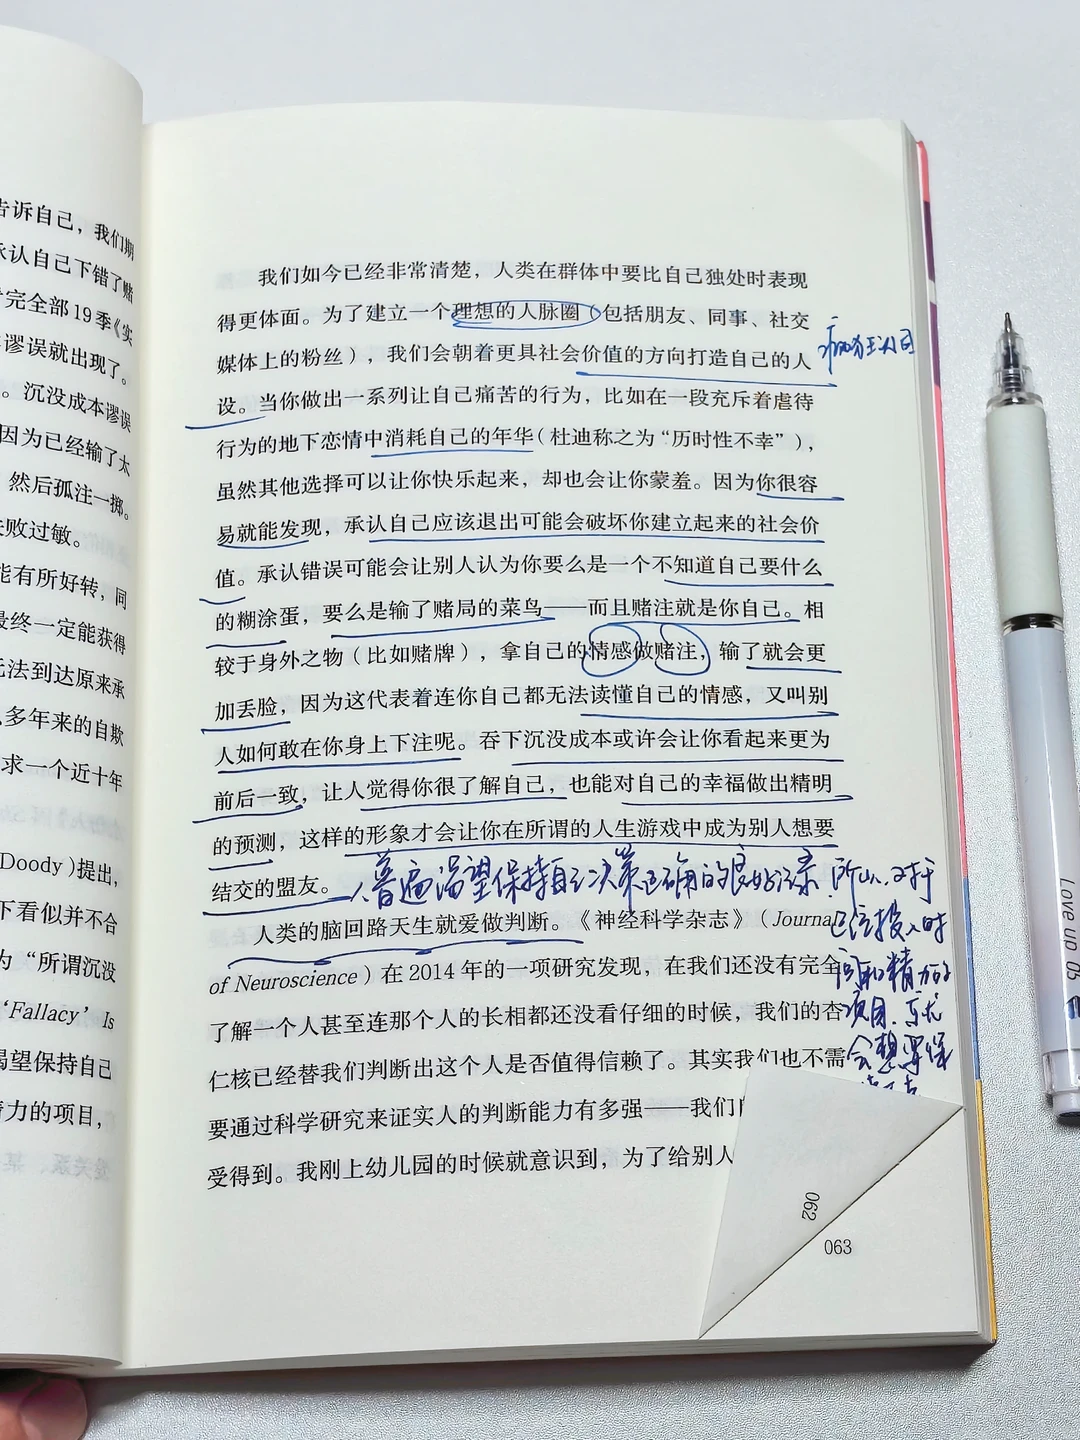 告诉自己，我们期
承认自己下错了赌
完全部19季《实
谬误就出现了。
。沉没成本谬误
因为已经输了太
然后孤注一掷。
失败过敏。
能有所好转，同
最终一定能获得
无法到达原来承
多年来的自欺
求一个近十年
Doody)提出，
下看似并不合
为“所谓沉没
‘Fallacy’ Is
渴望保持自己
精力的项目，
我们如今已经非常清楚，人类在群体中要比自己独处时表现
得更体面。为了建立一个理想的人脉圈（包括朋友、同事、社交
媒体上的粉丝），我们会朝着更具社会价值的方向打造自己的人
设。当你做出一系列让自己痛苦的行为，比如在一段充斥着虐待
行为的地下恋情中消耗自己的年华（杜迪称之为“历时性不幸”），
虽然其他选择可以让你快乐起来，却也会让你蒙羞。因为你很容
易就能发现，承认自己应该退出可能会破坏你建立起来的社会价
值。承认错误可能会让别人认为你要么是一个不知道自己要什么
的糊涂蛋，要么是输了赌局的菜鸟——而且赌注就是你自己。相
较于身外之物（比如赌牌），拿自己的情感做赌注，输了就会更
加丢脸，因为这代表着连你自己都无法读懂自己的情感，又叫别
人如何敢在你身上下注呢。吞下沉没成本或许会让你看起来更为
前后一致，让人觉得你很了解自己，也能对自己的幸福做出精明
的预测，这样的形象才会让你在所谓的人生游戏中成为别人想要
结交的盟友。
人普遍渴望保持自己决策正确的良好记录，所以，对于
已经投入时
间和精力的
项目，
会想要保
人类的脑回路天生就爱做判断。《神经科学杂志》（Journal
of Neuroscience）在2014年的一项研究发现，在我们还没有完全
了解一个人甚至连那个人的长相都还没看仔细的时候，我们的杏
仁核已经替我们判断出这个人是否值得信赖了。其实我们也不需
要通过科学研究来证实人的判断能力有多强——我们
受得到。我刚上幼儿园的时候就意识到，为了给别人
062
063
Love up 05